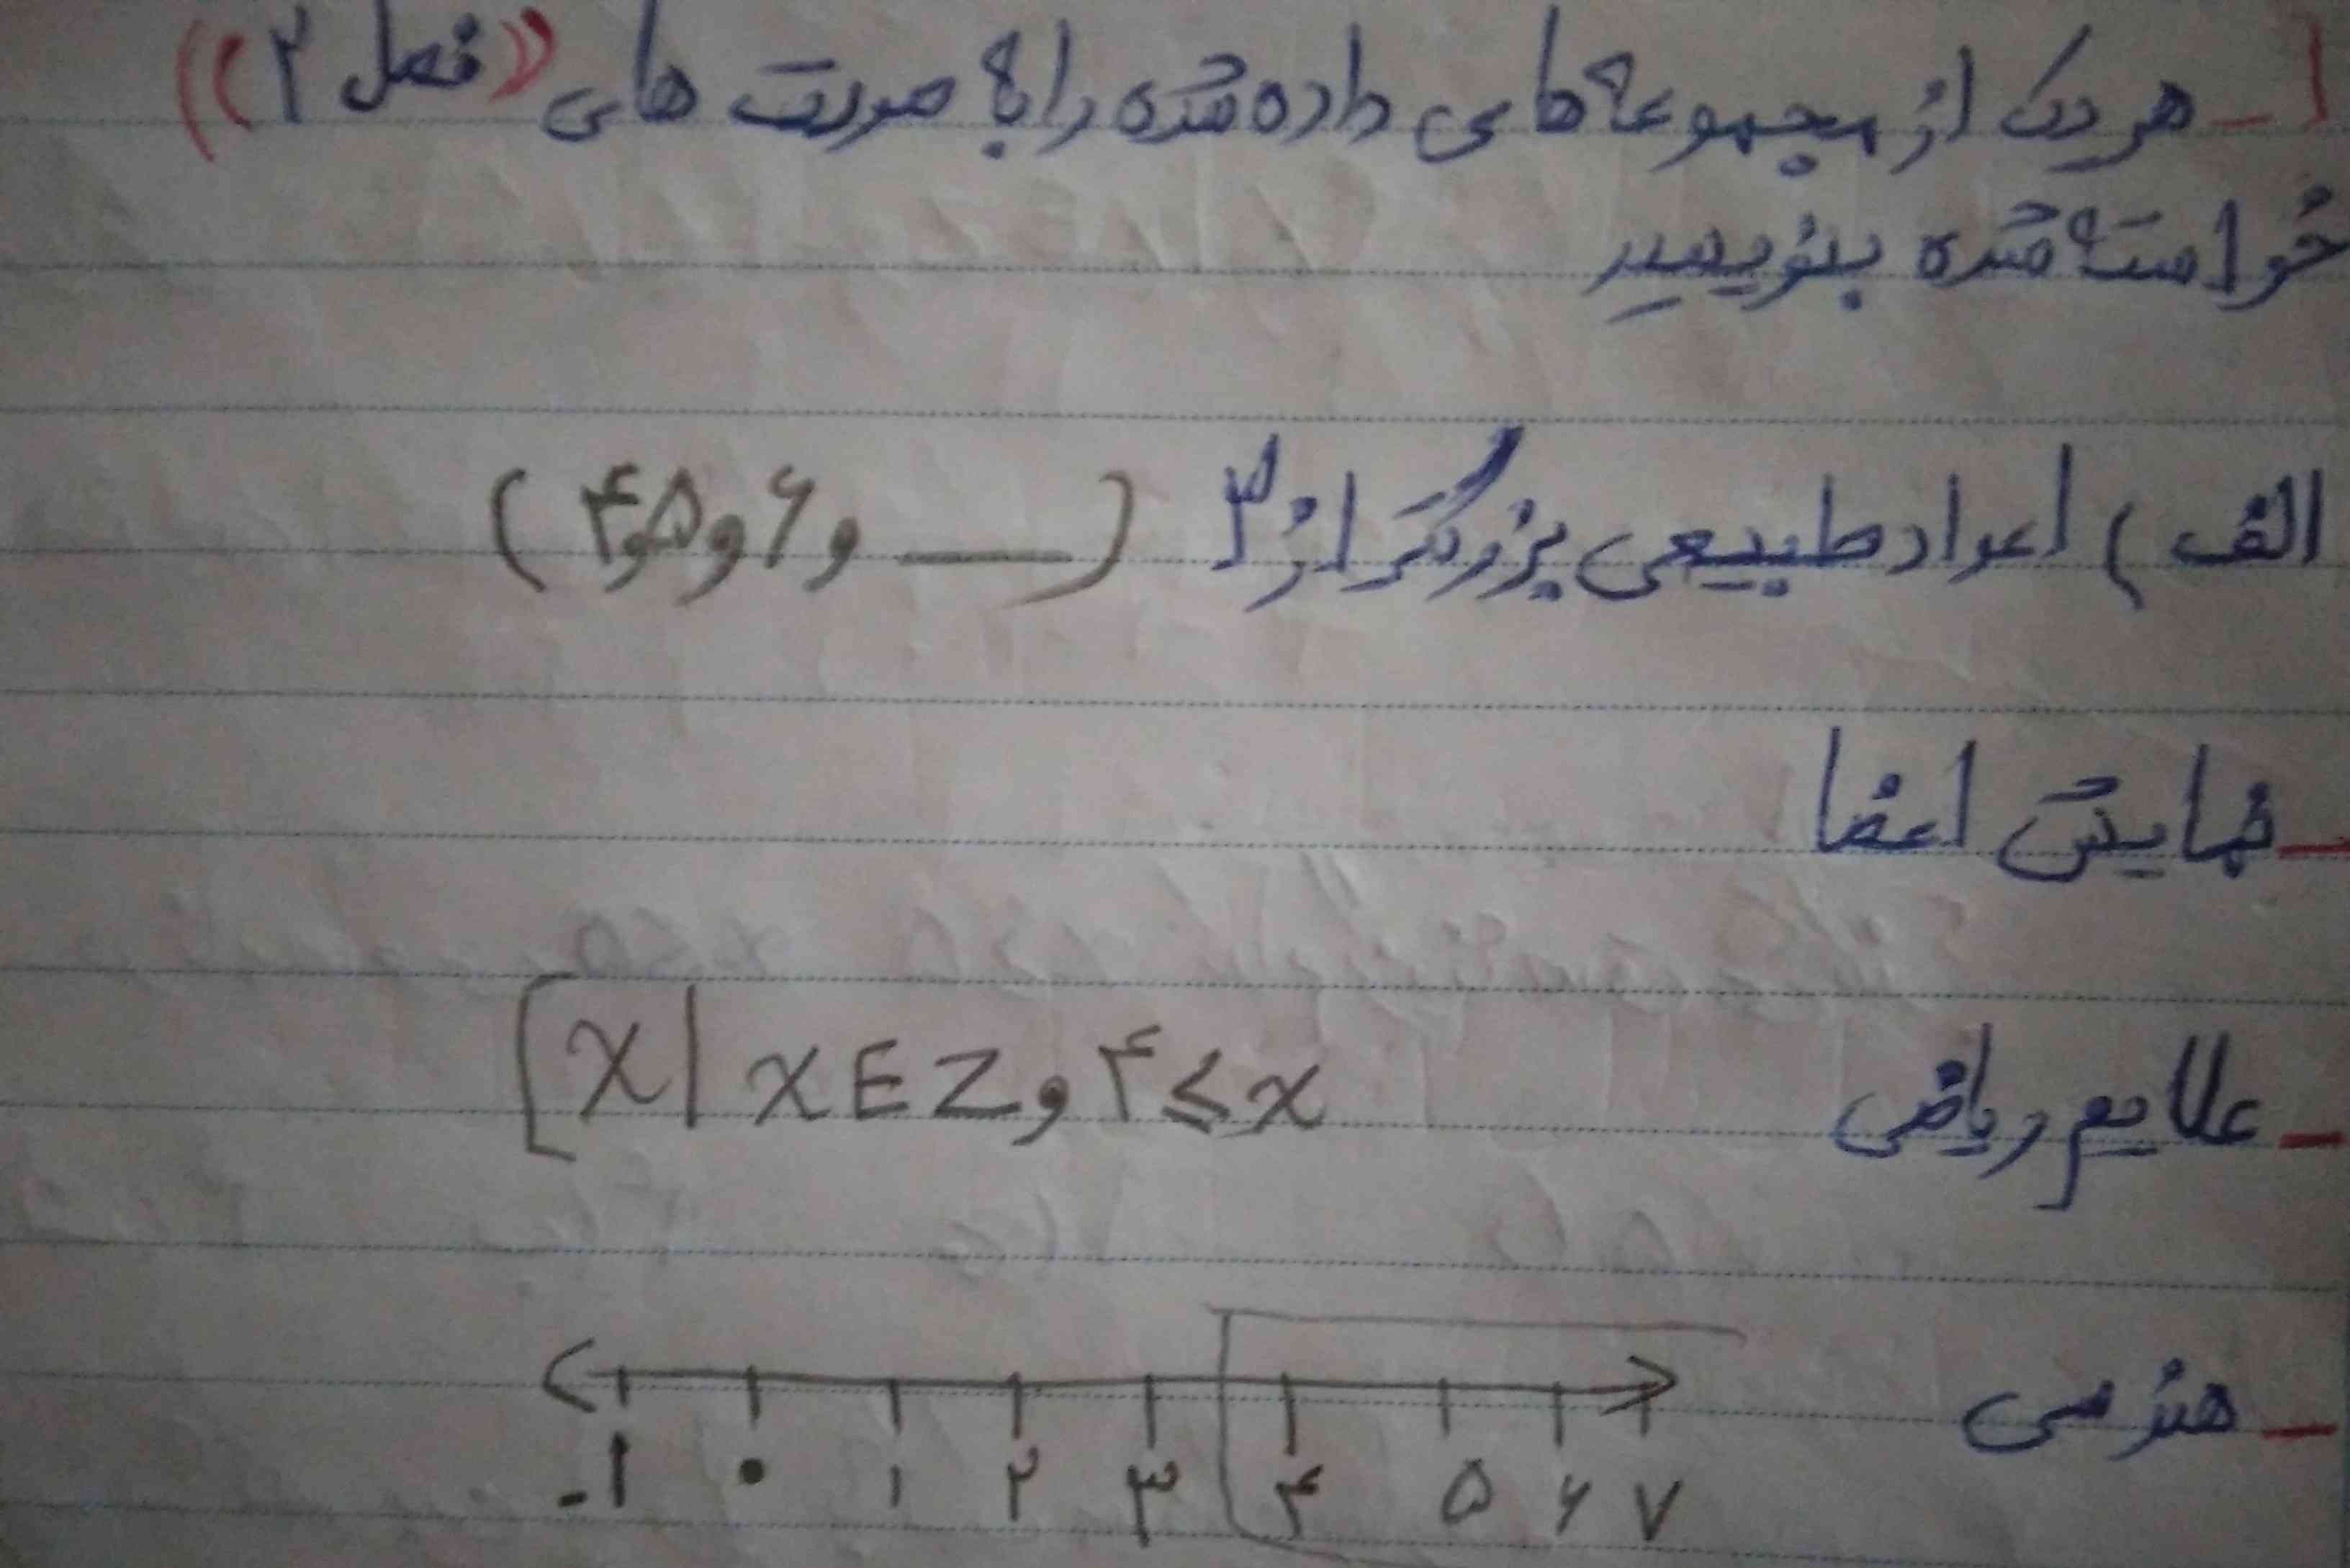 ۱- هر یک از مجموعه های داده شده را به صورت های «فصل ۲»
خواسته شده بنویسید
الف) اعداد طبیعی بزرگتر از ۳ (۴و۵و۶و __)
- نمایش اعضا
- علایم ریاضی [x | x ∈ Z و ۴ ≤ x
- هندسی
-۱ ۰ ۱ ۲ ۳ ۴ ۵ ۶ ۷